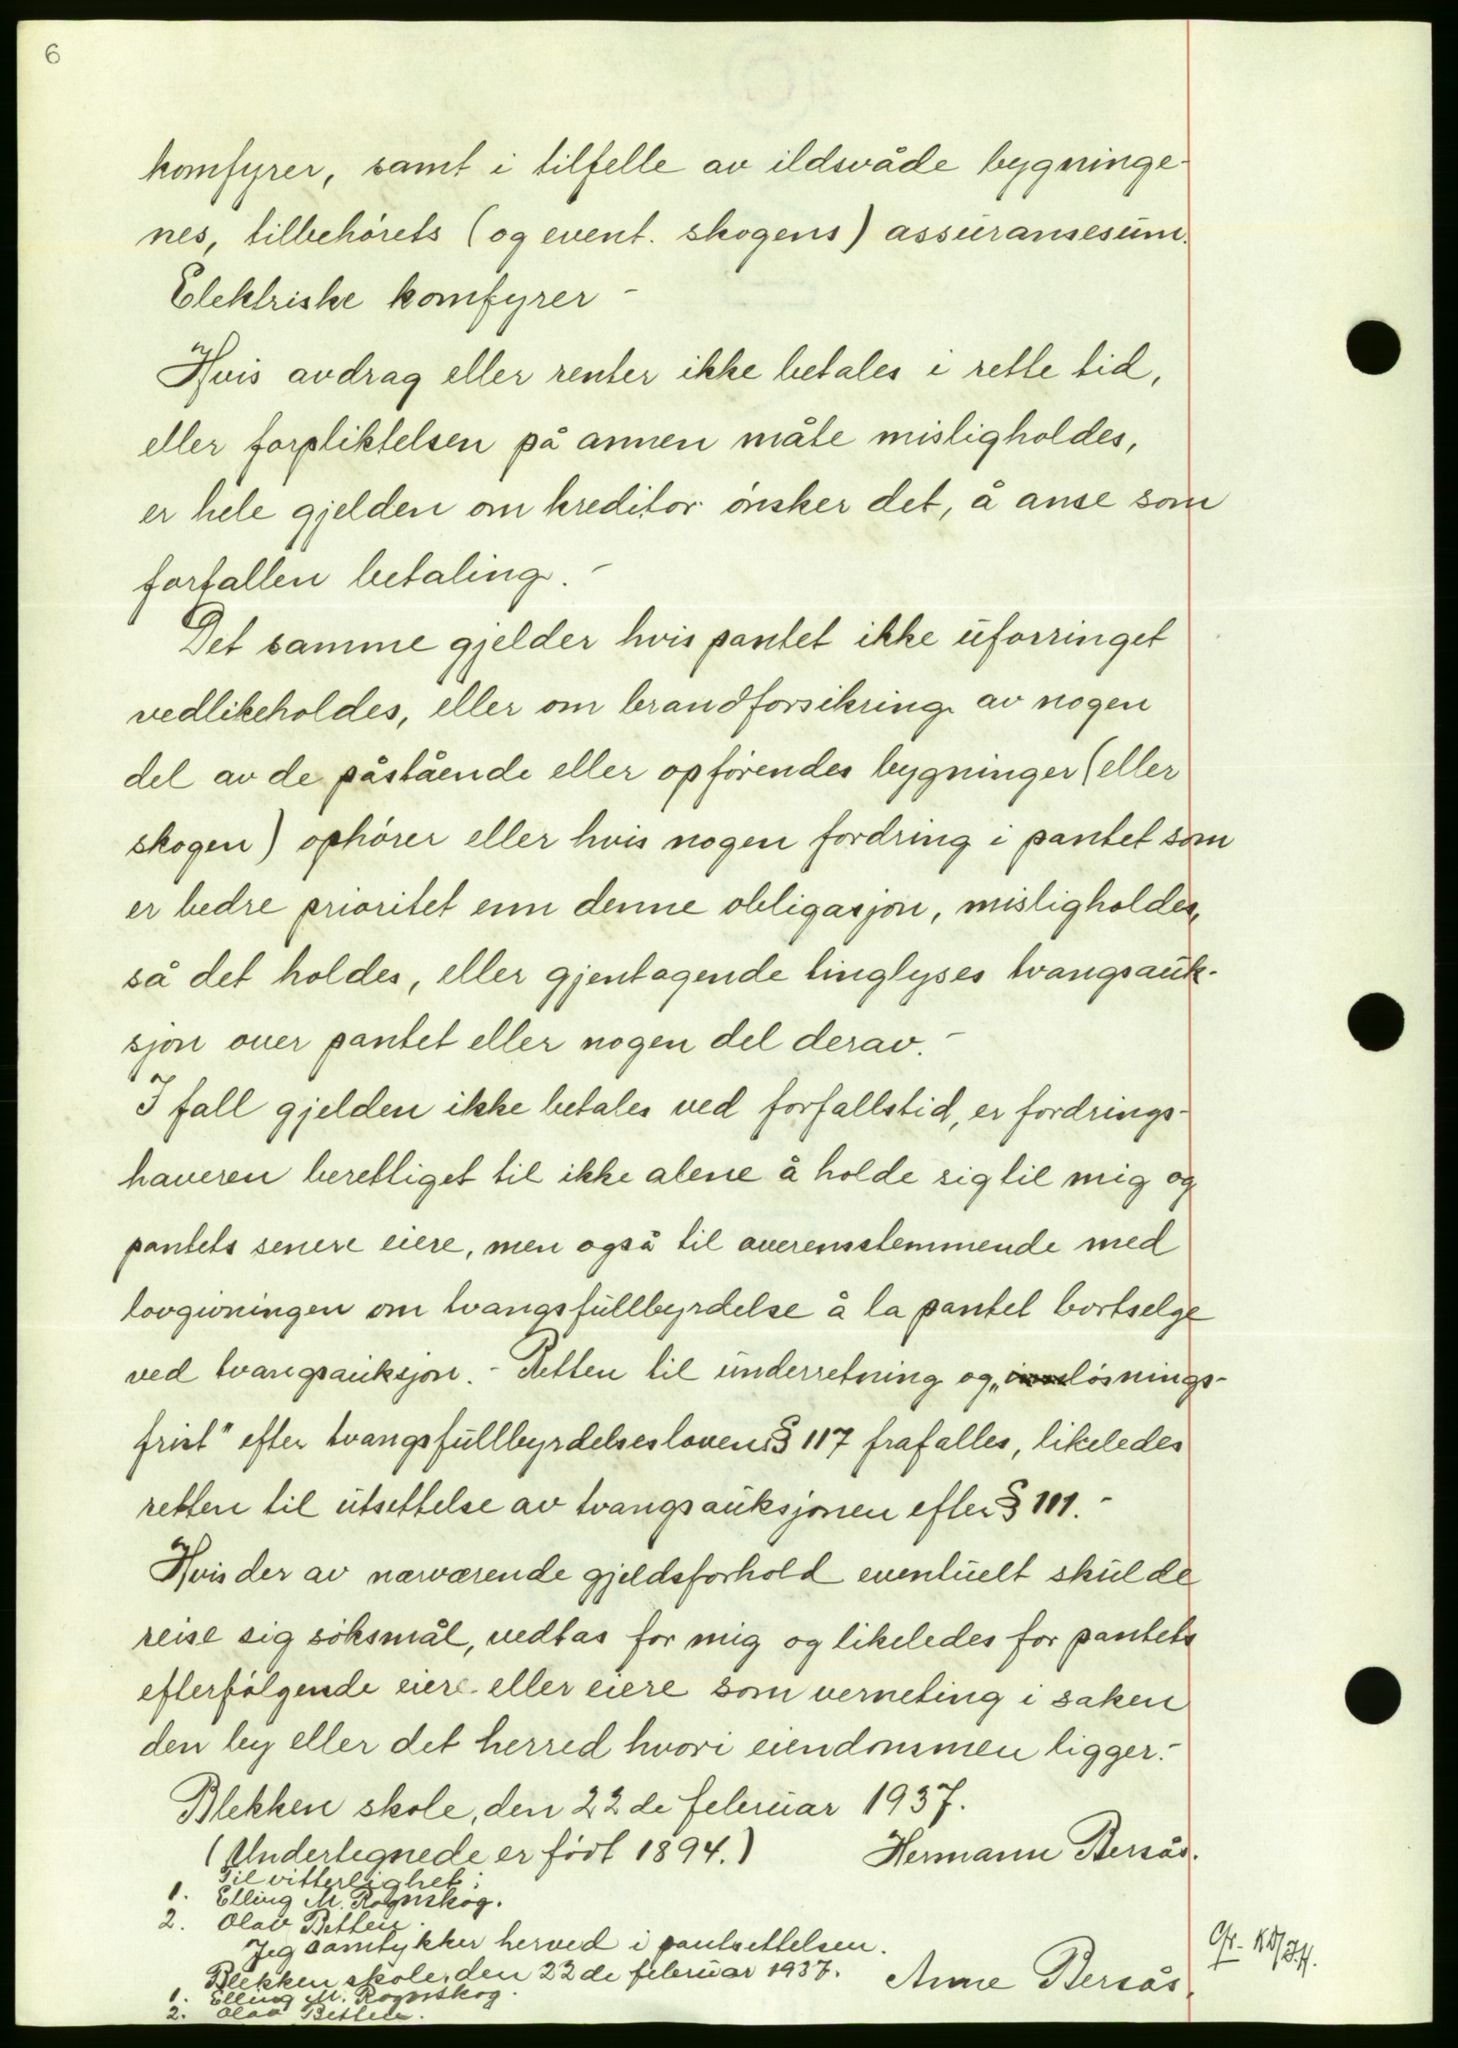 6
komfyrer, samt i tilfelle av ildsvåde bygninge-
nes, tilbehørets (og event. skogens) assuransesum.
Elektriske komfyrer -
Hvis avdrag eller renter ikke betales i rette tid,
eller forpliktelsen på annen måte misligholdes,
er hele gjelden om kreditor ønsker det, å anse som
forfallen betaling. -
Det samme gjelder hvis pantet ikke uforringet
vedlikeholdes, eller om brandforsikring av nogen
del av de påstående eller opførendes bygninger (eller
skogen) ophører eller hvis nogen fordring i pantet som
er bedre prioritet enn denne obligasjon, misligholdes,
så det holdes, eller gjentagende tinglyses tvangsauk-
sjon over pantet eller nogen del derav. -
I fall gjelden ikke betales ved forfallstid, er fordrings-
haveren berettiget til ikke alene å holde sig til mig og
pantets senere eiere, men også til overensstemmende med
lovgivningen om tvangsfullbyrdelse å la pantet bortselge
ved tvangsauksjon. - Retten til underretning og „løsnings-
frist" efter tvangsfullbyrdelsesloven § 117 frafalles, likeledes
retten til utsettelse av tvangsauksjonen efter § 111. -
Hvis der av nærværende gjeldsforhold eventuelt skulde
reise sig søksmål, vedtas for mig og likeledes for pantets
efterfølgende eiere eller eiere som verneting i saken
den by eller det herred hvori eiendommen ligger. -
Blekken skole, den 22 de februar 1937.
(Undertegnede er født 1894.) Hermann Bersås.
Til vitterlighet:
1. Elling M. Rognskog.
2. Olav Betten.
Jeg samtykker herved i pantsettelsen.
Blekken skole, den 22 de februar 1937. Anne Bersås.
1. Elling M. Rognskog.
2. Olav Betten.